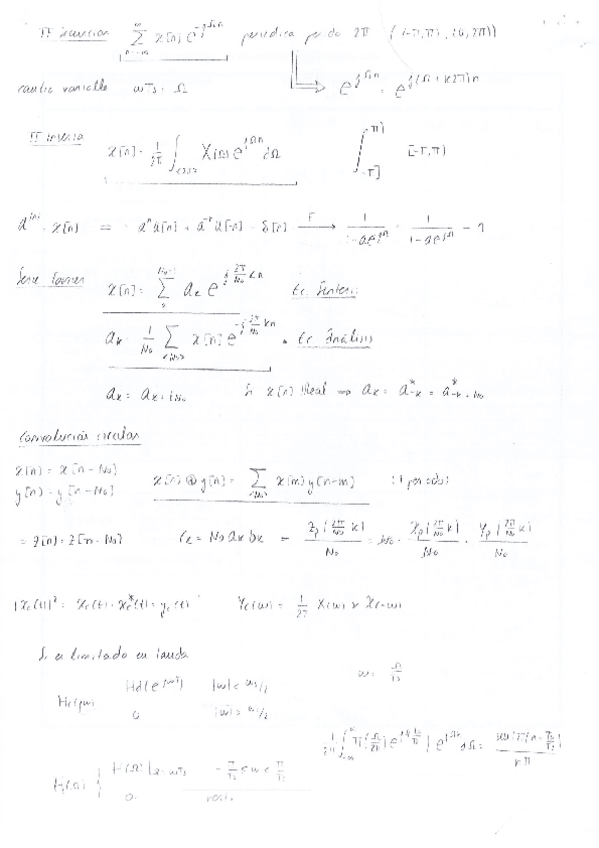 TF Secuencias $\sum_{n=-\infty}^{\infty} x[n] e^{-j\Omega n}$ periódica periodo 2π ( [-π,π) , [0,2π))
cambio variable ωTs = Ω $e^{j\Omega n} = e^{j(\Omega + k2\pi)n}$
TF inversa $x[n] = \frac{1}{2\pi} \int_{<2\pi>} X(\Omega) e^{j\Omega n} d\Omega$ $\int_{-\pi}^{\pi}$ [-π,π)
$a^{|n|} = x[n] = a^n u[n] + a^{-n} u[-n] - \delta[n] \xrightarrow{F} \frac{1}{1-ae^{-j\Omega}} + \frac{1}{1-ae^{j\Omega}} - 1$
Serie Fourier $x[n] = \sum_{0}^{N_0-1} a_k e^{j\frac{2\pi}{N_0}kn}$ Ec Síntesis
$a_k = \frac{1}{N_0} \sum_{<N_0>} x[n] e^{-j\frac{2\pi}{N_0}kn}$ Ec Análisis
$a_k = a_{k+N_0}$ Si x[n] Real ⇒ $a_k = a^*_{-k} = a^*_{-k+N_0}$
Convolución circular
x[n] = x[n-N_0]
y[n] = y[n-N_0] $x[n] ⊛ y[n] = \sum_{<N_0>} x[m] y[n-m]$ (1 periodo)
= z[n] = z[n-N_0] $c_k = N_0 a_k b_k = \frac{Z_p(\frac{2\pi}{N_0}k)}{N_0} = N_0 \cdot \frac{X_p(\frac{2\pi}{N_0}k)}{N_0} \cdot \frac{Y_p(\frac{2\pi}{N_0}k)}{N_0}$
$|x_c(t)|^2 = x_c(t) \cdot x_c^*(t) = y_c(t)$ $Y_c(\omega) = \frac{1}{2\pi} X(\omega) * X(-\omega)$
Si es limitado en banda
$H_d(e^{j\omega T})$ |ω| < ωs/2 $\omega = \frac{\Omega}{T_s}$
Hc(jω)
0 |ω| > ωs/2
H(Ω)|Ω=ωTs $-\frac{\pi}{T_s} < \omega < \frac{\pi}{T_s}$
0 resto